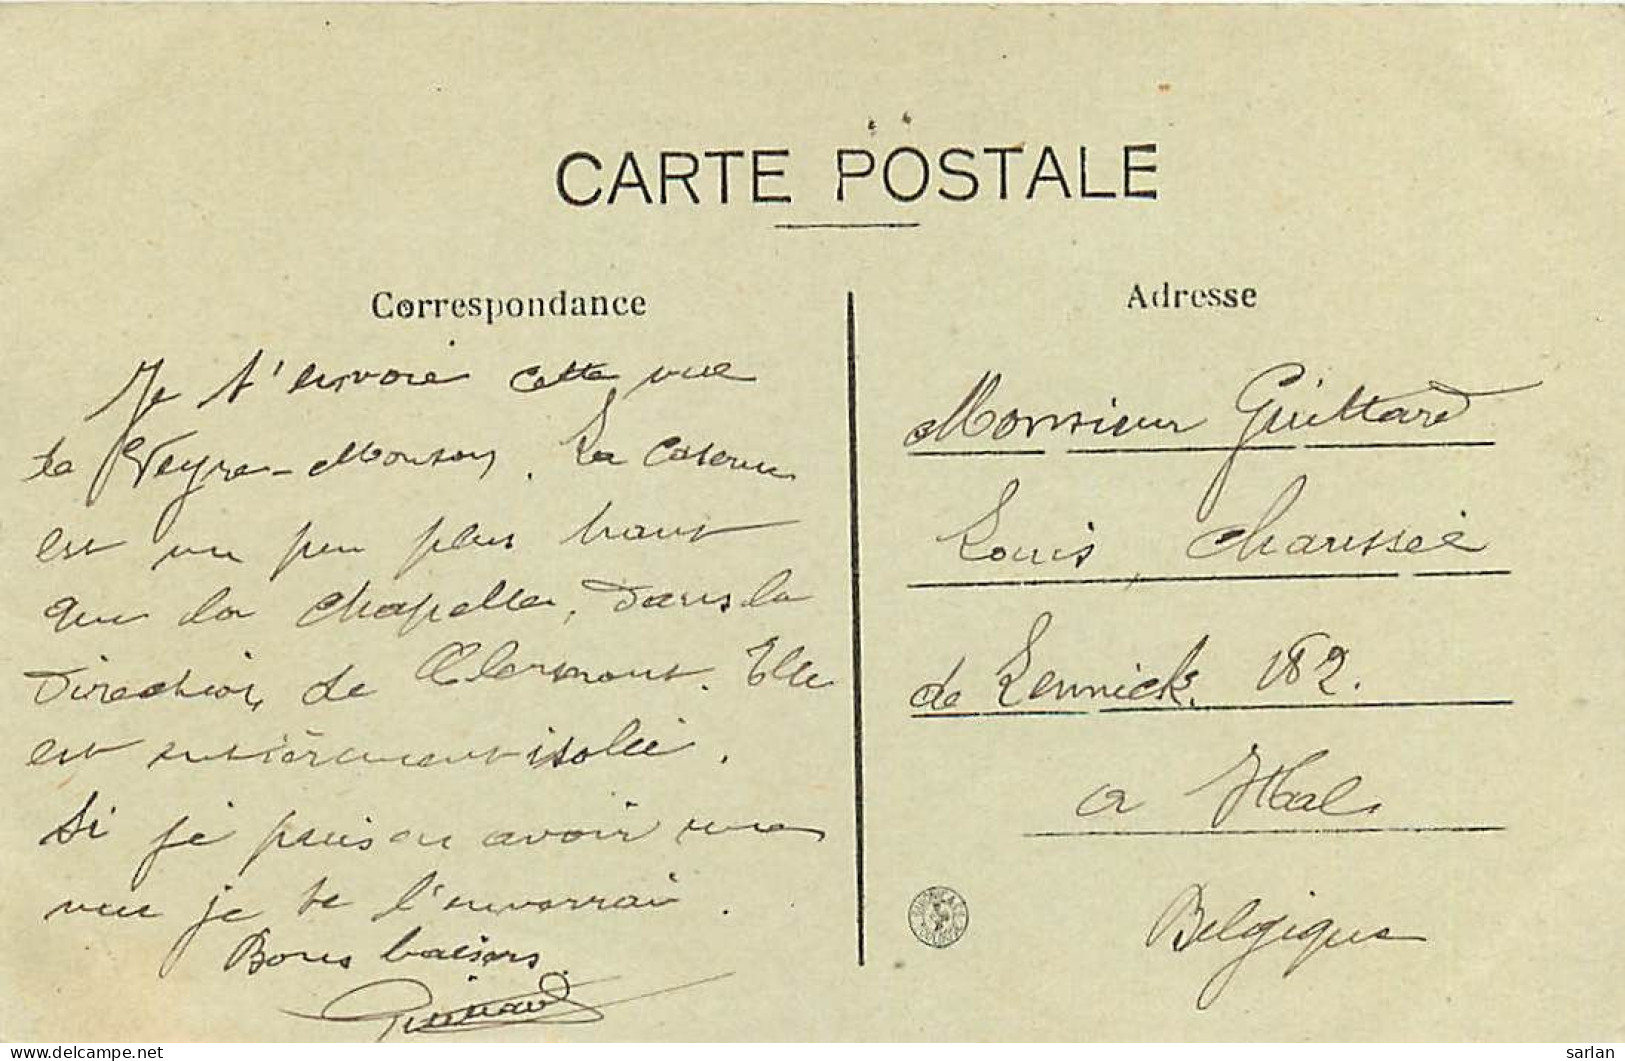 CARTE POSTALE
Correspondance
Adresse
Je t'envoie cette vue
de Veyre-Monton. La caserne
est un peu plus haut
que la chapelle, dans la
direction de Clermont. Elle
est entièrement isolée.
Si je puis en avoir une
vue je te l'enverrai.
Bons baisers
Monsieur Guittard
Louis, Chaussée
de Lennick. 182.
a Hal
Belgique
www.delcampe.net
sarlan